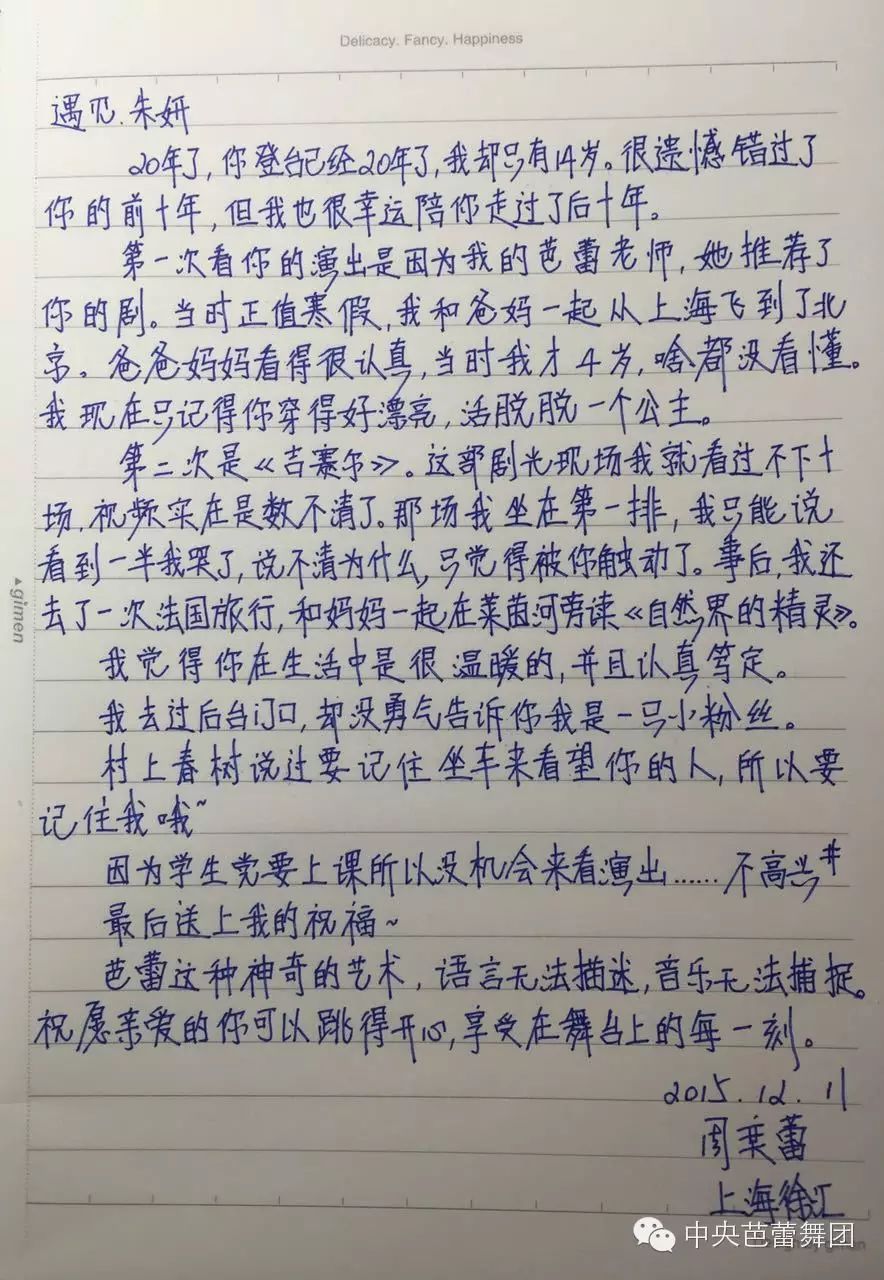 Delicacy. Fancy. Happiness
遇见.朱妍
20年了,你登台已经20年了,我却只有14岁。很遗憾错过了
你的前十年,但我也很幸运陪你走过了后十年。
第一次看你的演出是因为我的芭蕾老师,她推荐了
你的剧。当时正值寒假,我和爸妈一起从上海飞到了北
京。爸爸妈妈看得很认真,当时我才4岁,啥都没看懂。
我现在只记得你穿得好漂亮,活脱脱一个公主。
第二次是《吉赛尔》。这部剧光现场我就看过不下十
场,视频实在是数不清了。那场我坐在第一排,我只能说
看到一半我哭了,说不清为什么,只觉得被你触动了。事后,我还
去了一次法国旅行,和妈妈一起在莱茵河旁读《自然界的精灵》。
我觉得你在生活中是很温暖的,并且认真笃定。
我去过后台门口,却没勇气告诉你我是一只小粉丝。
村上春树说过要记住坐车来看望你的人,所以要
记住我哦~
因为学生党要上课所以没机会来看演出……不高兴#
最后送上我的祝福~
芭蕾这种神奇的艺术,语言无法描述,音乐无法捕捉。
祝愿亲爱的你可以跳得开心,享受在舞台上的每一刻。
2015.12.11
周奕蕾
上海徐汇
gimen
中央芭蕾舞团